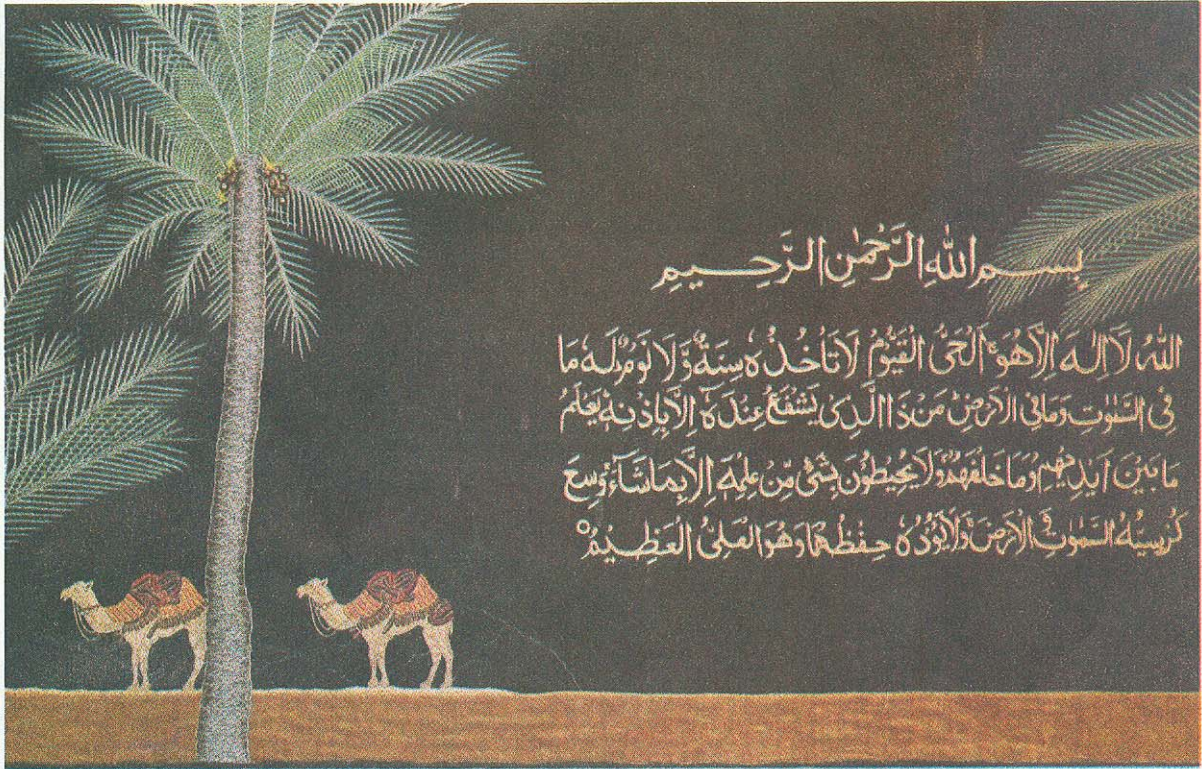 بِسْمِ اللهِ الرَّحْمٰنِ الرَّحِيمِ
اَللهُ لَآ اِلٰهَ اِلَّا هُوَ اَلْحَىُّ الْقَيُّوْمُ لَا تَاْخُذُهٗ سِنَةٌ وَّلَا نَوْمٌ لَهٗ مَا
فِى السَّمٰوٰتِ وَمَا فِى الْاَرْضِ مَنْ ذَا الَّذِىْ يَشْفَعُ عِنْدَهٗٓ اِلَّا بِاِذْنِهٖ يَعْلَمُ
مَا بَيْنَ اَيْدِيْهِمْ وَمَا خَلْفَهُمْ وَلَا يُحِيْطُوْنَ بِشَىْءٍ مِّنْ عِلْمِهٖٓ اِلَّا بِمَا شَآءَ وَسِعَ
كُرْسِيُّهُ السَّمٰوٰتِ وَ الْاَرْضَ وَلَا يَئُوْدُهٗ حِفْظُهُمَا وَهُوَ الْعَلِىُّ الْعَظِيْمُ